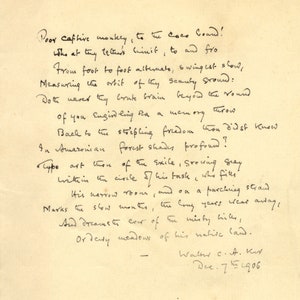 Poor captive monkey, to the coco bound!
Who at thy tether's limit, to and fro
From foot to foot alternate, swingest slow,
Measuring the orbit of thy scanty ground:
Doth never thy brute brain beyond the round
Of you a memory throw
Back to the stripling freedom thou didst know
In Amazonian forest shades profound?
Type art thou of the exile, growing grey
Within the circle of his task, who fills
His narrow room, and on a parching stead
Marks the slow months, the long years wear away,
And dreameth ever of the misty hills,
Or dewy meadows of his native land.
— Walter C. A. Ker
Dec. 7th 1906